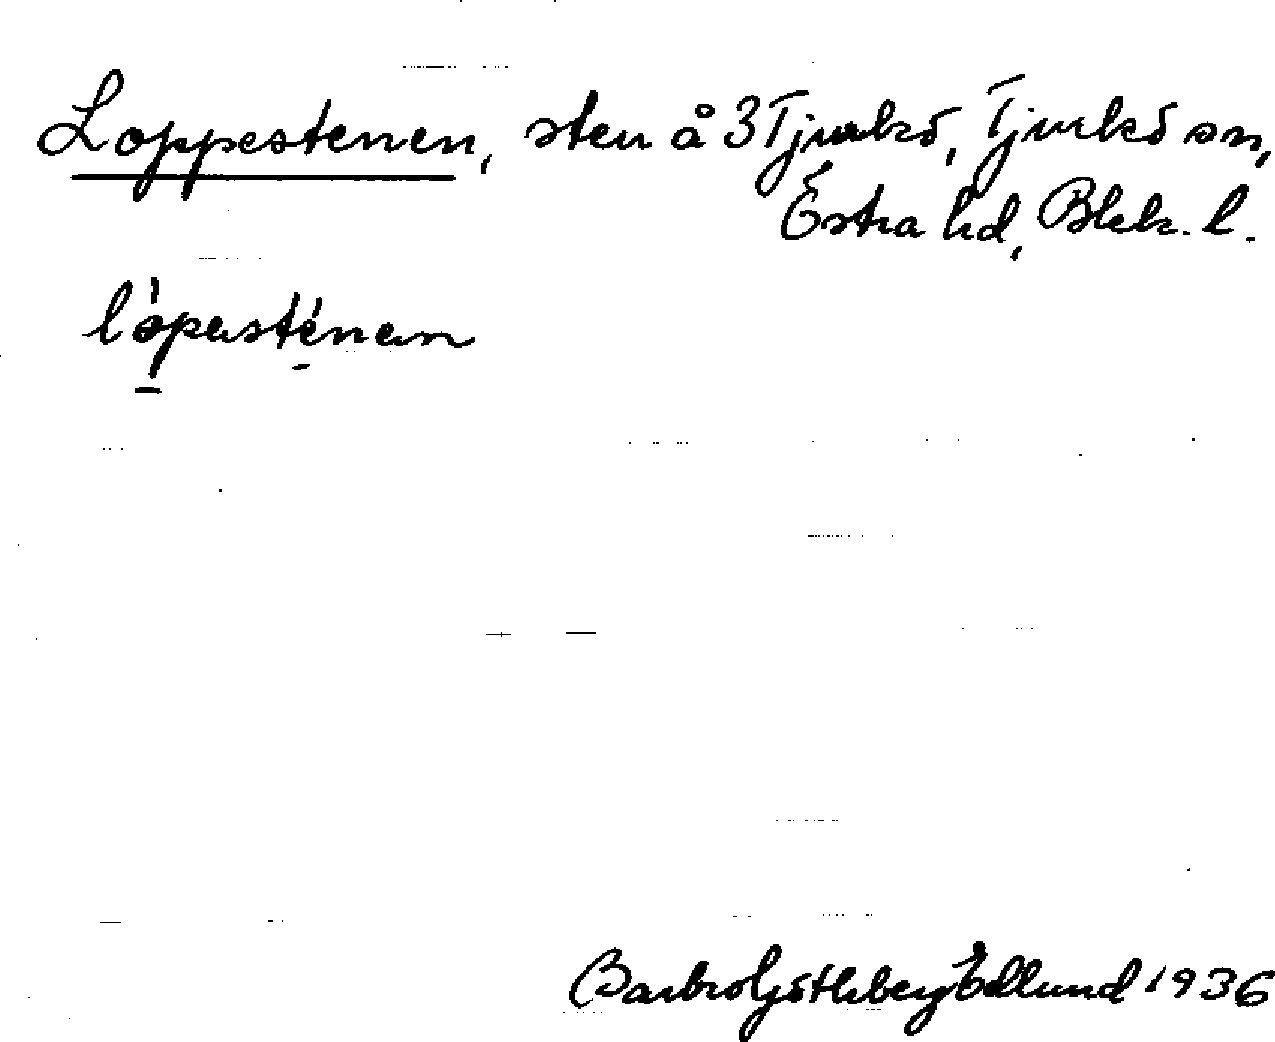 Loppestenen, sten å 3 Tjurkö, Tjurkö sn,
Östra hd, Blek. l.
lòpasténan
Barbro Göthberg Edlund 1936